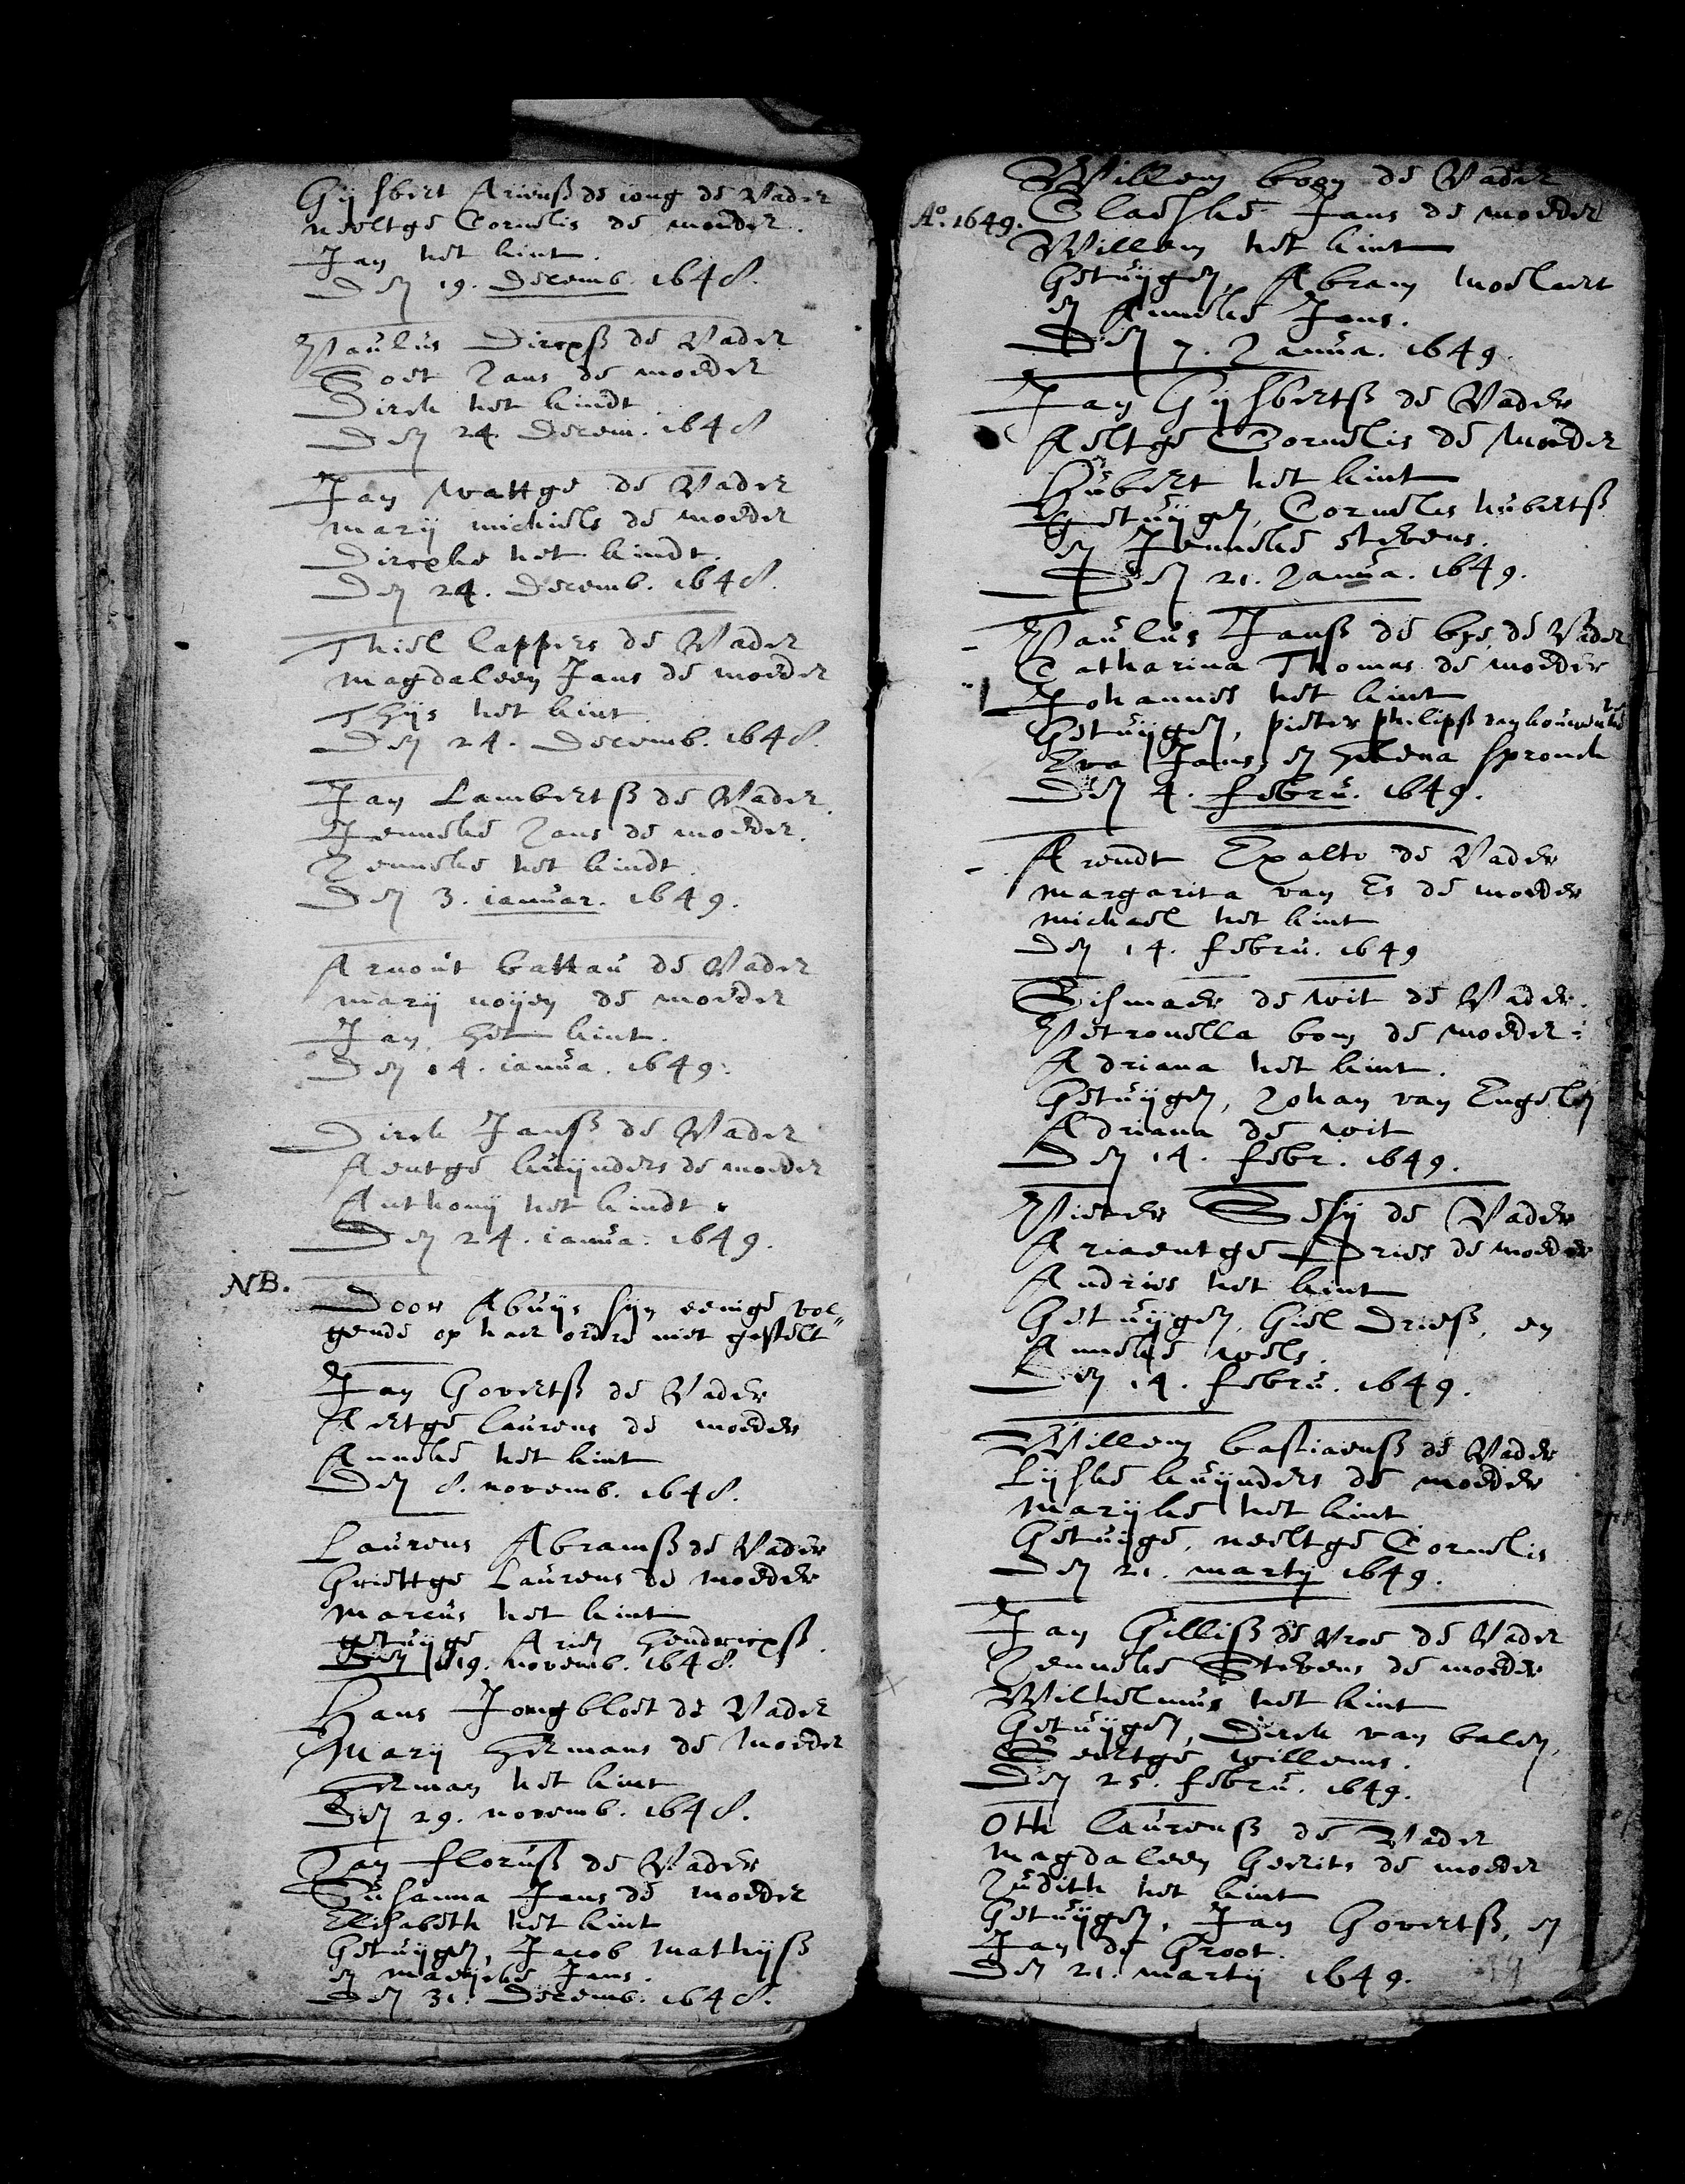 Gijsbert Arienß de iong de Vader
neeltge Cornelis de moeder.
Jan het kint.
Den 19. Decemb. 1648.
Paulus Dircxß de Vader
Soet Jans de moeder
Dirck het kindt
Den 24. Decem. 1648
Jan wattge de Vader
marij michiels de moeder
Dircxke het kindt.
Den 24. Decemb. 1648.
Thiel lappers de Vader
magdaleen Jans de moeder
Thijs het kint.
Den 24. Decemb. 1648.
Jan Lambertß de Vader.
Jenneke Jans de moeder.
Jenneke het kindt.
Den 3. ianuar. 1649.
Arnout battau de Vader
marij noijen de moeder
Jan het kint.
Den 14. ianua. 1649.
Dirck Janß de Vader
Aentge kuijnders de moeder
Anthonij het kindt.
Den 24. ianua. 1649.
NB.
Door Abuijs sijn eenige vol
gende op haer ordre niet gestelt
Jan Govertß de Vader
Aertge laurens de moeder
Anneke het kint
Den 8. novemb. 1648.
Laurens Abramß de Vader
Griettge Laurens de moeder
Marcus het kint
getuijge Arien Hendricxß.
Den 19. novemb. 1648.
Hans Jongbloet de Vader
Marij Hermans de Moeder
Herman het kint
Den 29. novemb. 1648.
Jan Florusß de Vader
Susanna Jans de moeder
Elisabeth het kint
Getuijgen, Jacob Mathijß
en maeijcke Jans.
Den 31. Decemb. 1648.
Willem boon de Vader
Aº. 1649.
Claeske Jans de moeder
Willem het kint
Getuijgen, Abram
en Anneke Jans.
Den 7. Janua. 1649.
Jan Gijsbertß de Vader
Aeltge Cornelis de Moeder
Hubert het kint
Getuijgen, Cornelis hubertß
en Jenneke stevens.
Den 21. Janua. 1649.
Paulus Janß de bije de Vader
Catharina Thomas de moeder
Johannes het kint
Getuijgen, pieter philipß van
Eva Jans, en Helena spronck
Den 4. Febru. 1649.
Arendt Exalto de Vader
margarita van Es de moeder
michael het kint
Den 14. Febru. 1649
Gijsmaer de wit de Vader.
Petronella bom de moeder.
Adriana het kint.
Getuijgen, Johan van Engelen
Adriana de wit
Den 14. Febr. 1649.
Pieter Sesij de Vader
Ariaentge Dries de moeder
Andries het kint
Getuijgen, Giel Driesß, en
Anneke wels.
Den 14. Febru. 1649.
Willem bastiaenß de Vader
Lijske kuijnders de moeder
Marijke het kint
Getuijge, neeltge Cornelis
Den 21. martij 1649.
Jan Gillisß de vroe de Vader
Jenneke Stevens de moeder
Wilhelmus het kint
Getuijgen, Dirck van balen,
Geertge willems.
Den 25. Febru. 1649.
Oth laurenß de Vader
Magdaleen Gerrits de moeder
Judith het kint
Getuijgen, Jan Govertß, en
Jan de Groot.
Den 21. martij 1649.